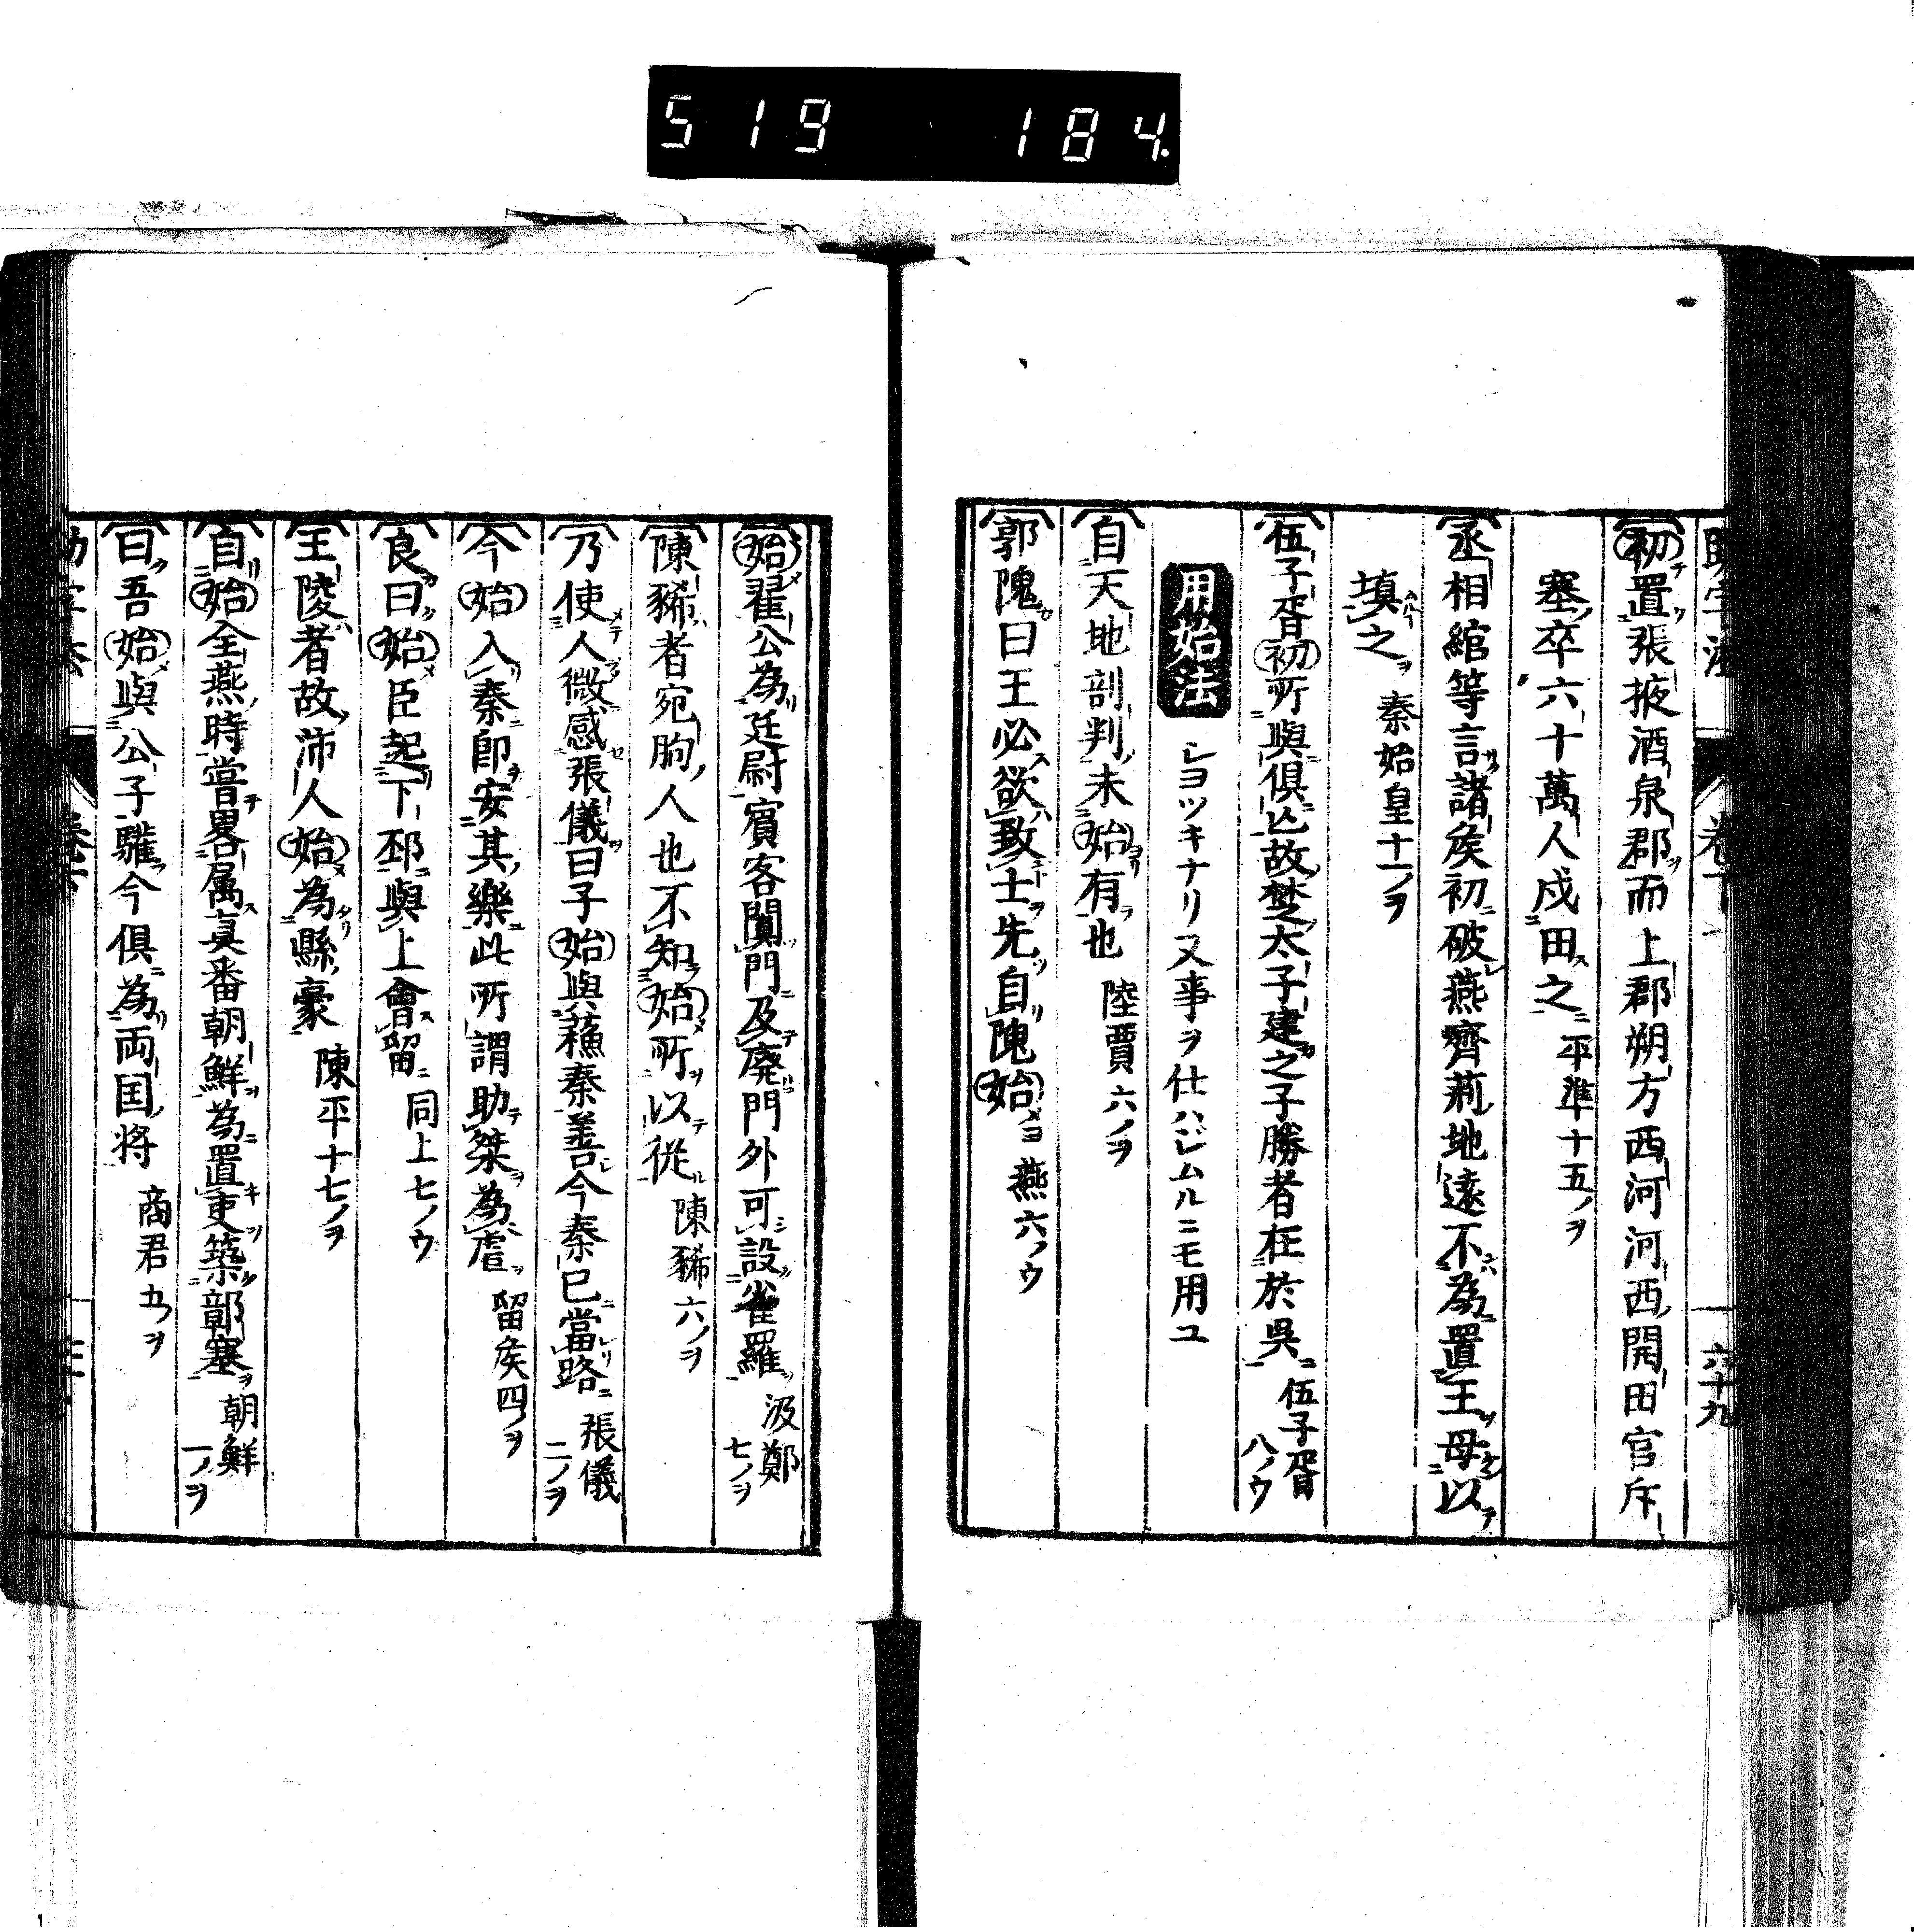 519 184.
初置張掖酒泉郡而上郡朔方西河河西開田官斥
塞卒六十萬人戍田之 平準十五ノヲ
丞相綰等言諸侯初破燕齊荊地遠不為置王毋以
填之 秦始皇十一ノヲ
伍子胥初所與俱亡故楚太子建之子勝者在於吳 伍子胥八ノウ
用始法 シヨツキナリ又事ヲ仕ハジムルニモ用ユ
自天地剖判未始有也 陸賈六ノヲ
郭隗曰王必欲致士先自隗始 燕六ノウ
始翟公為廷尉賓客闐門及廃門外可設雀羅 汲鄭七ノヲ
陳豨者宛朐人也不知始所以從 陳豨六ノヲ
乃使人微感張儀曰子始與蘓秦善今秦已當路 張儀二ノヲ
今始入秦即安其樂此所謂助桀為虐 留侯四ノヲ
良曰始臣起下邳與上會留 同上七ノウ
王陵者故沛人始為縣豪 陳平十七ノヲ
自始全燕時嘗畧属真番朝鮮為置吏築鄣塞 朝鮮一ノヲ
曰吾始與公子驩今俱為両国将 商君五ノヲ